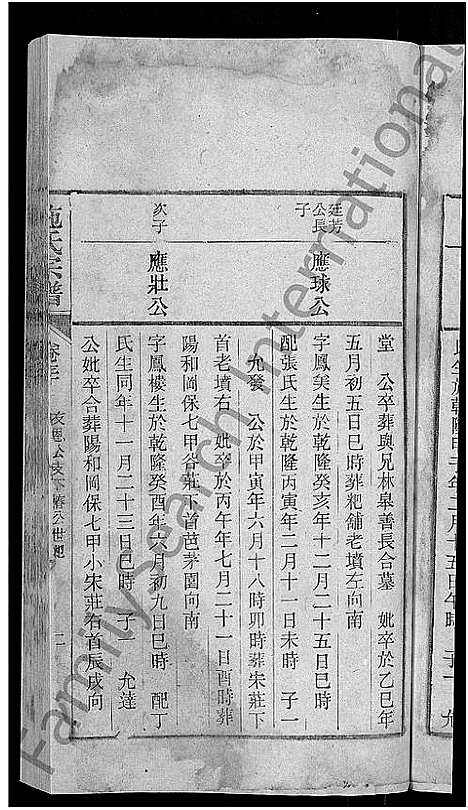 廷芳
公長
子
應球公
次子
應壯公
堂　公卒葬與兄林皋善長合墓　妣卒於乙巳年
五月初五日巳時葬粑舖老墳左向南
字鳳美生於乾隆癸亥年十二月二十五日巳時
配張氏生於乾隆丙寅年二月十一日未時　子一
允發　公於甲寅年六月十八時卯時葬宋莊下
首老墳右　妣卒於丙午年七月二十一日酉時葬
陽和岡保七甲谷莊下首芭茅園向南
字鳳樓生於乾隆癸酉年六月初九日巳時　配丁
氏生同年十一月二十三日巳時　子一　允達
公妣卒合葬陽和岡保七甲小宋莊右首辰戌向
施氏宗譜
二
FamilySearch International